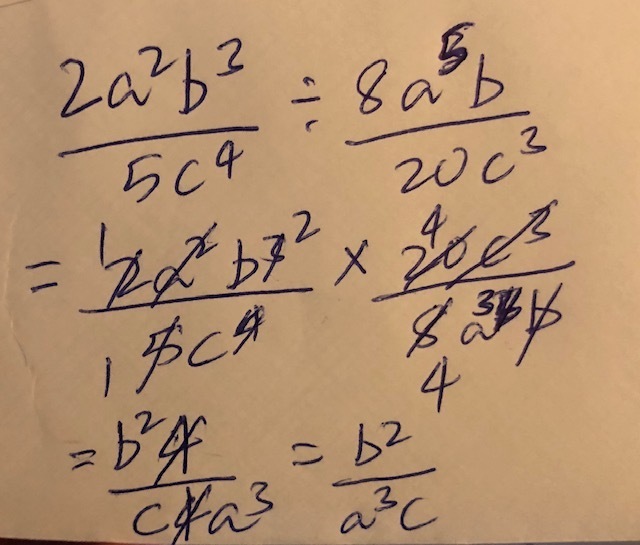 2a²b³/5c⁴ ÷ 8a⁵b/20c³
= 1 2a²b³ ²/1 5c⁴ × 4 20c³/8a³ ⁵b 4
= b²4/c4a³ = b²/a³c